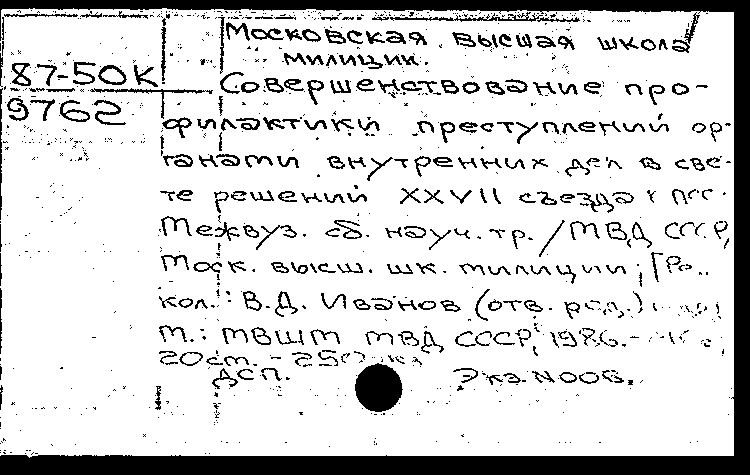 Московская высшая школа
милиции.
87-50К
9762
Совершенствование про-
филактики преступлений ор-
ганами внутренних дел в све-
те решений XXVII съезда
Межвуз. сб. науч. тр. / МВД СССР,
Моск. высш. шк. милиции; [Ре
кол.: В.Д. Иванов (отв. ред.)
М.: МВШМ МВД СССР, 1986.-
20 см. -
ДСП. Экз. N 006.